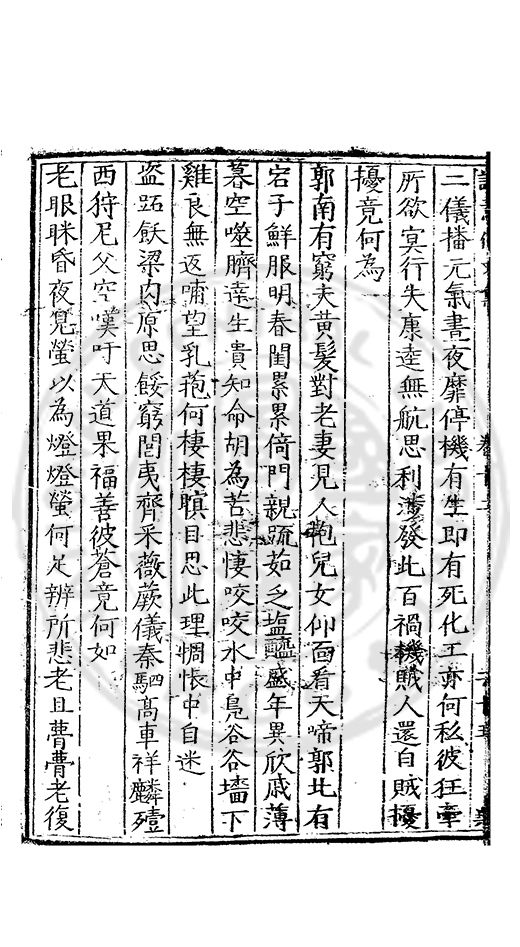 二儀播元氣晝夜靡停機有生即有死化工亦何私彼狂牽
所欲冥行失康逵無航思利濟發此百禍機賊人還自賊擾
擾竟何為
郭南有窮夫黃髮對老妻見人抱兒女仰面看天啼郭北有
宕子鮮服明春閨累累倚門親䟽茹乏塩醯盛年異欣戚薄
暮空噬臍達生貴知命胡為苦悲悽咬咬水中鳧谷谷墻下
雞良無返哺望乳菢何棲棲瞑目思此理惆悵中自迷
盜跖飫梁肉原思餒窮閻夷齊采薇蕨儀秦駟髙車祥麟殪
西狩尼父空嘆吁天道果福善彼蒼竟何如
老眼眯昏夜見螢以為燈燈螢何足辨所悲老且瞢瞢老復